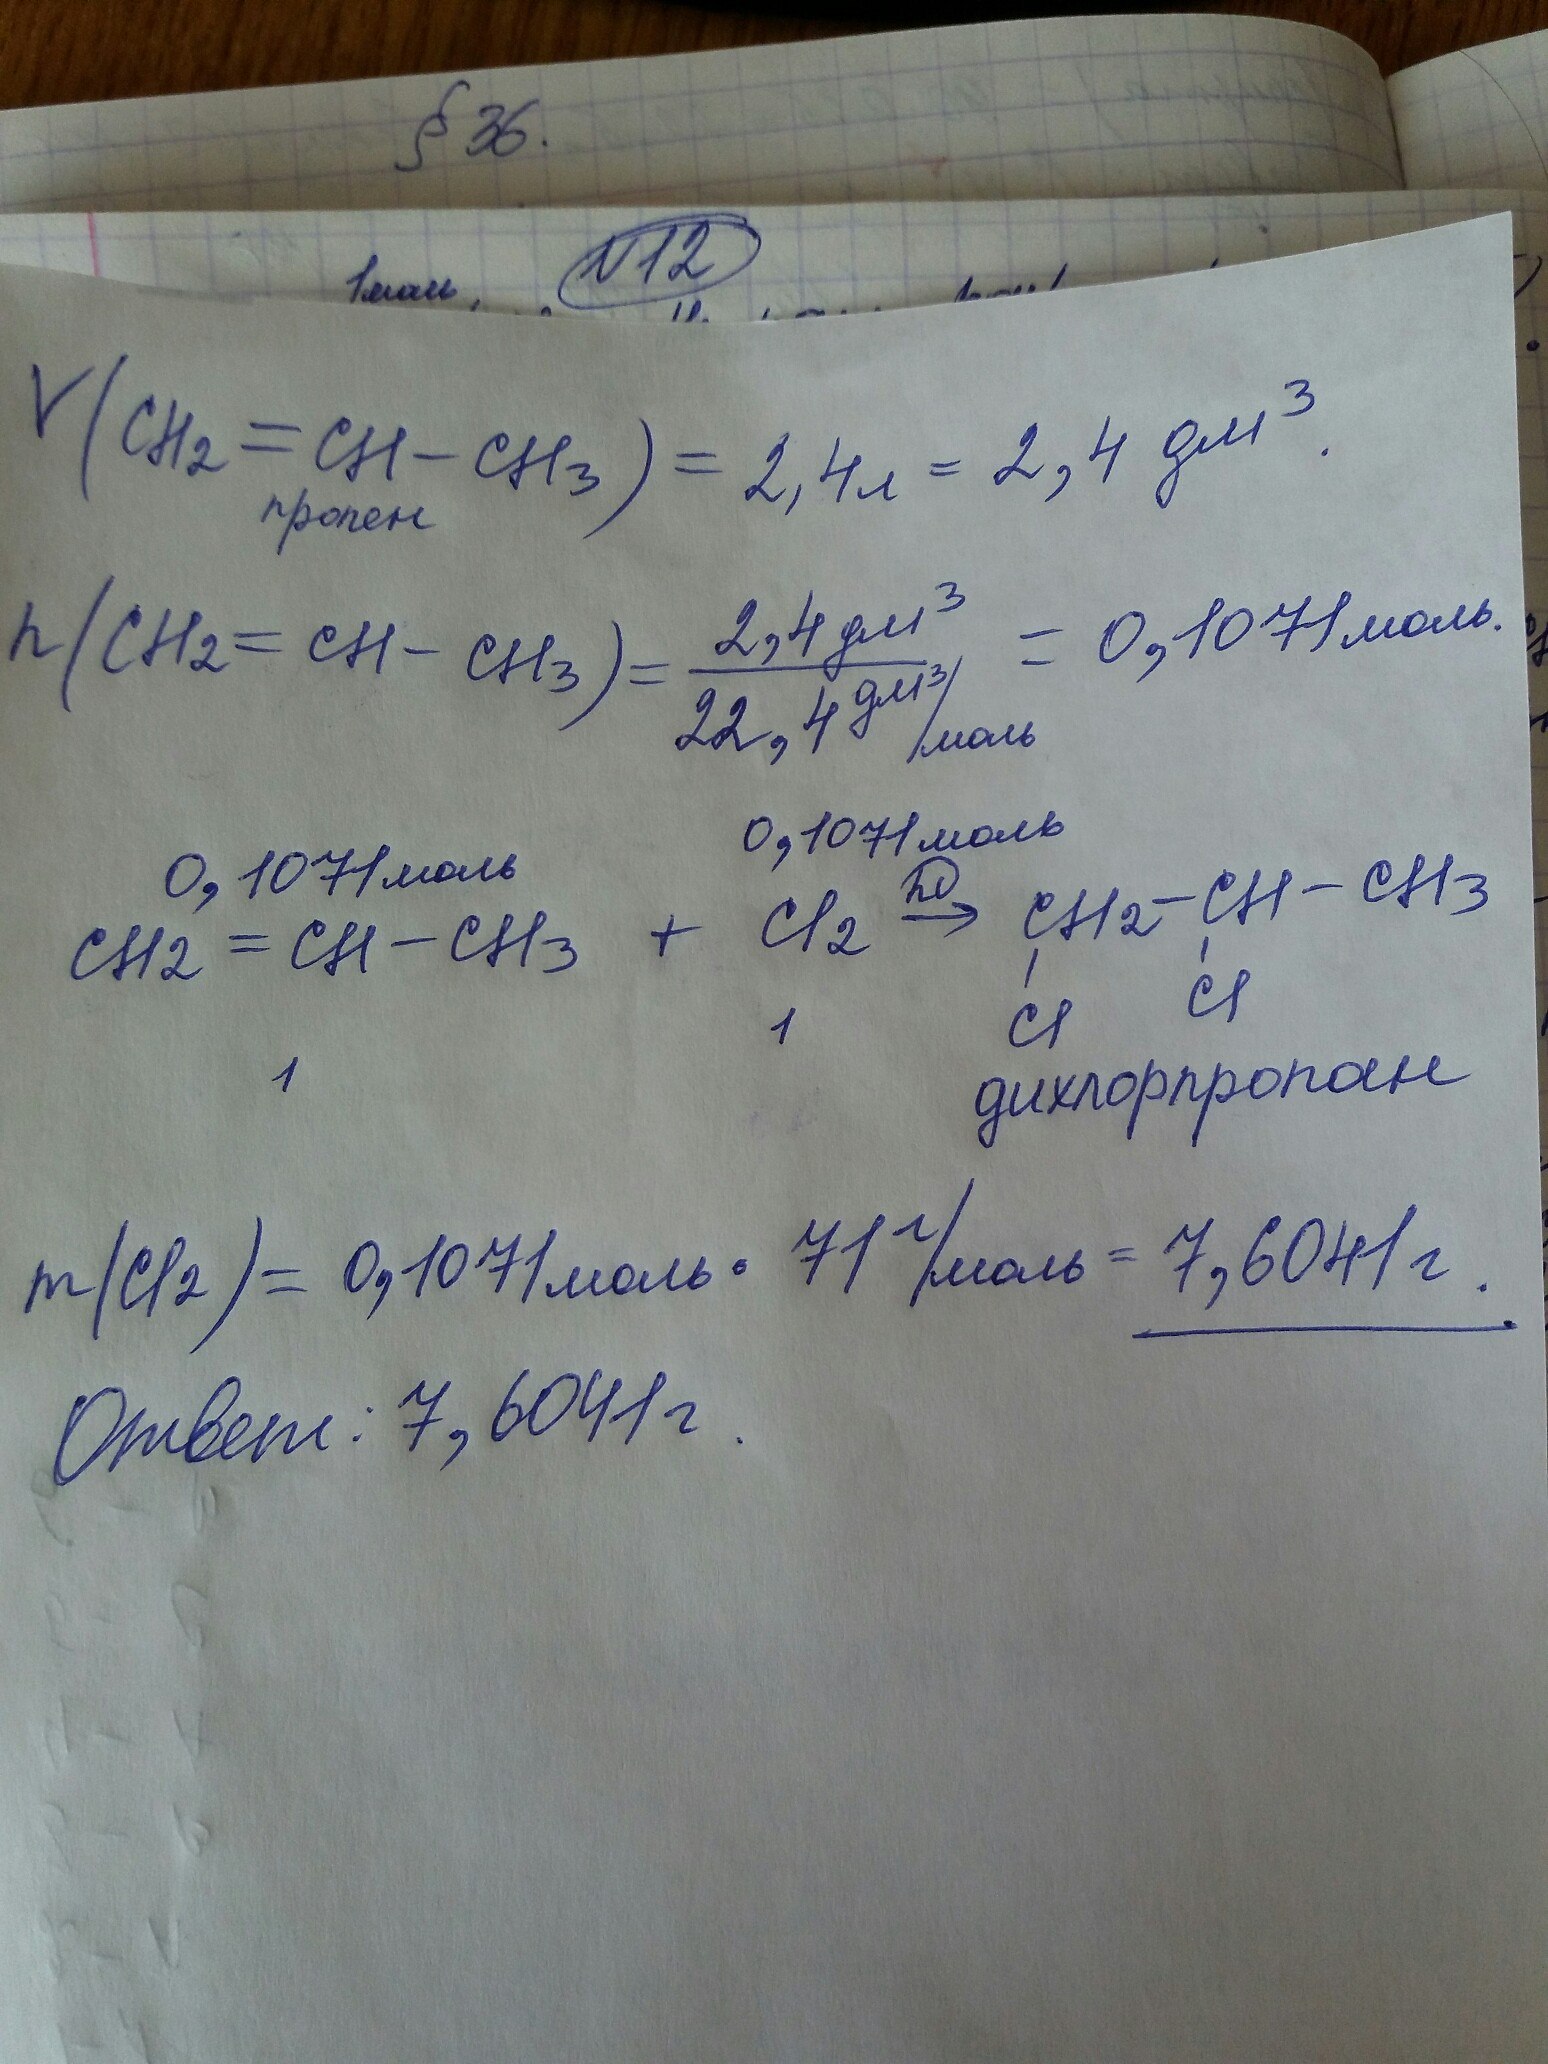 § 36.
N12
1 моль
V(CH2=CH-CH3) = 2,4л = 2,4 дм³.
пропен
n(CH2=CH-CH3) = 2,4 дм³ / 22,4 дм³/моль = 0,1071 моль.
0,1071 моль 0,1071 моль
CH2=CH-CH3 + Cl2 → CH2-CH-CH3
Cl Cl
1 1
дихлорпропан
m(Cl2) = 0,1071 моль · 71 г/моль = 7,6041 г.
Ответ: 7,6041 г.